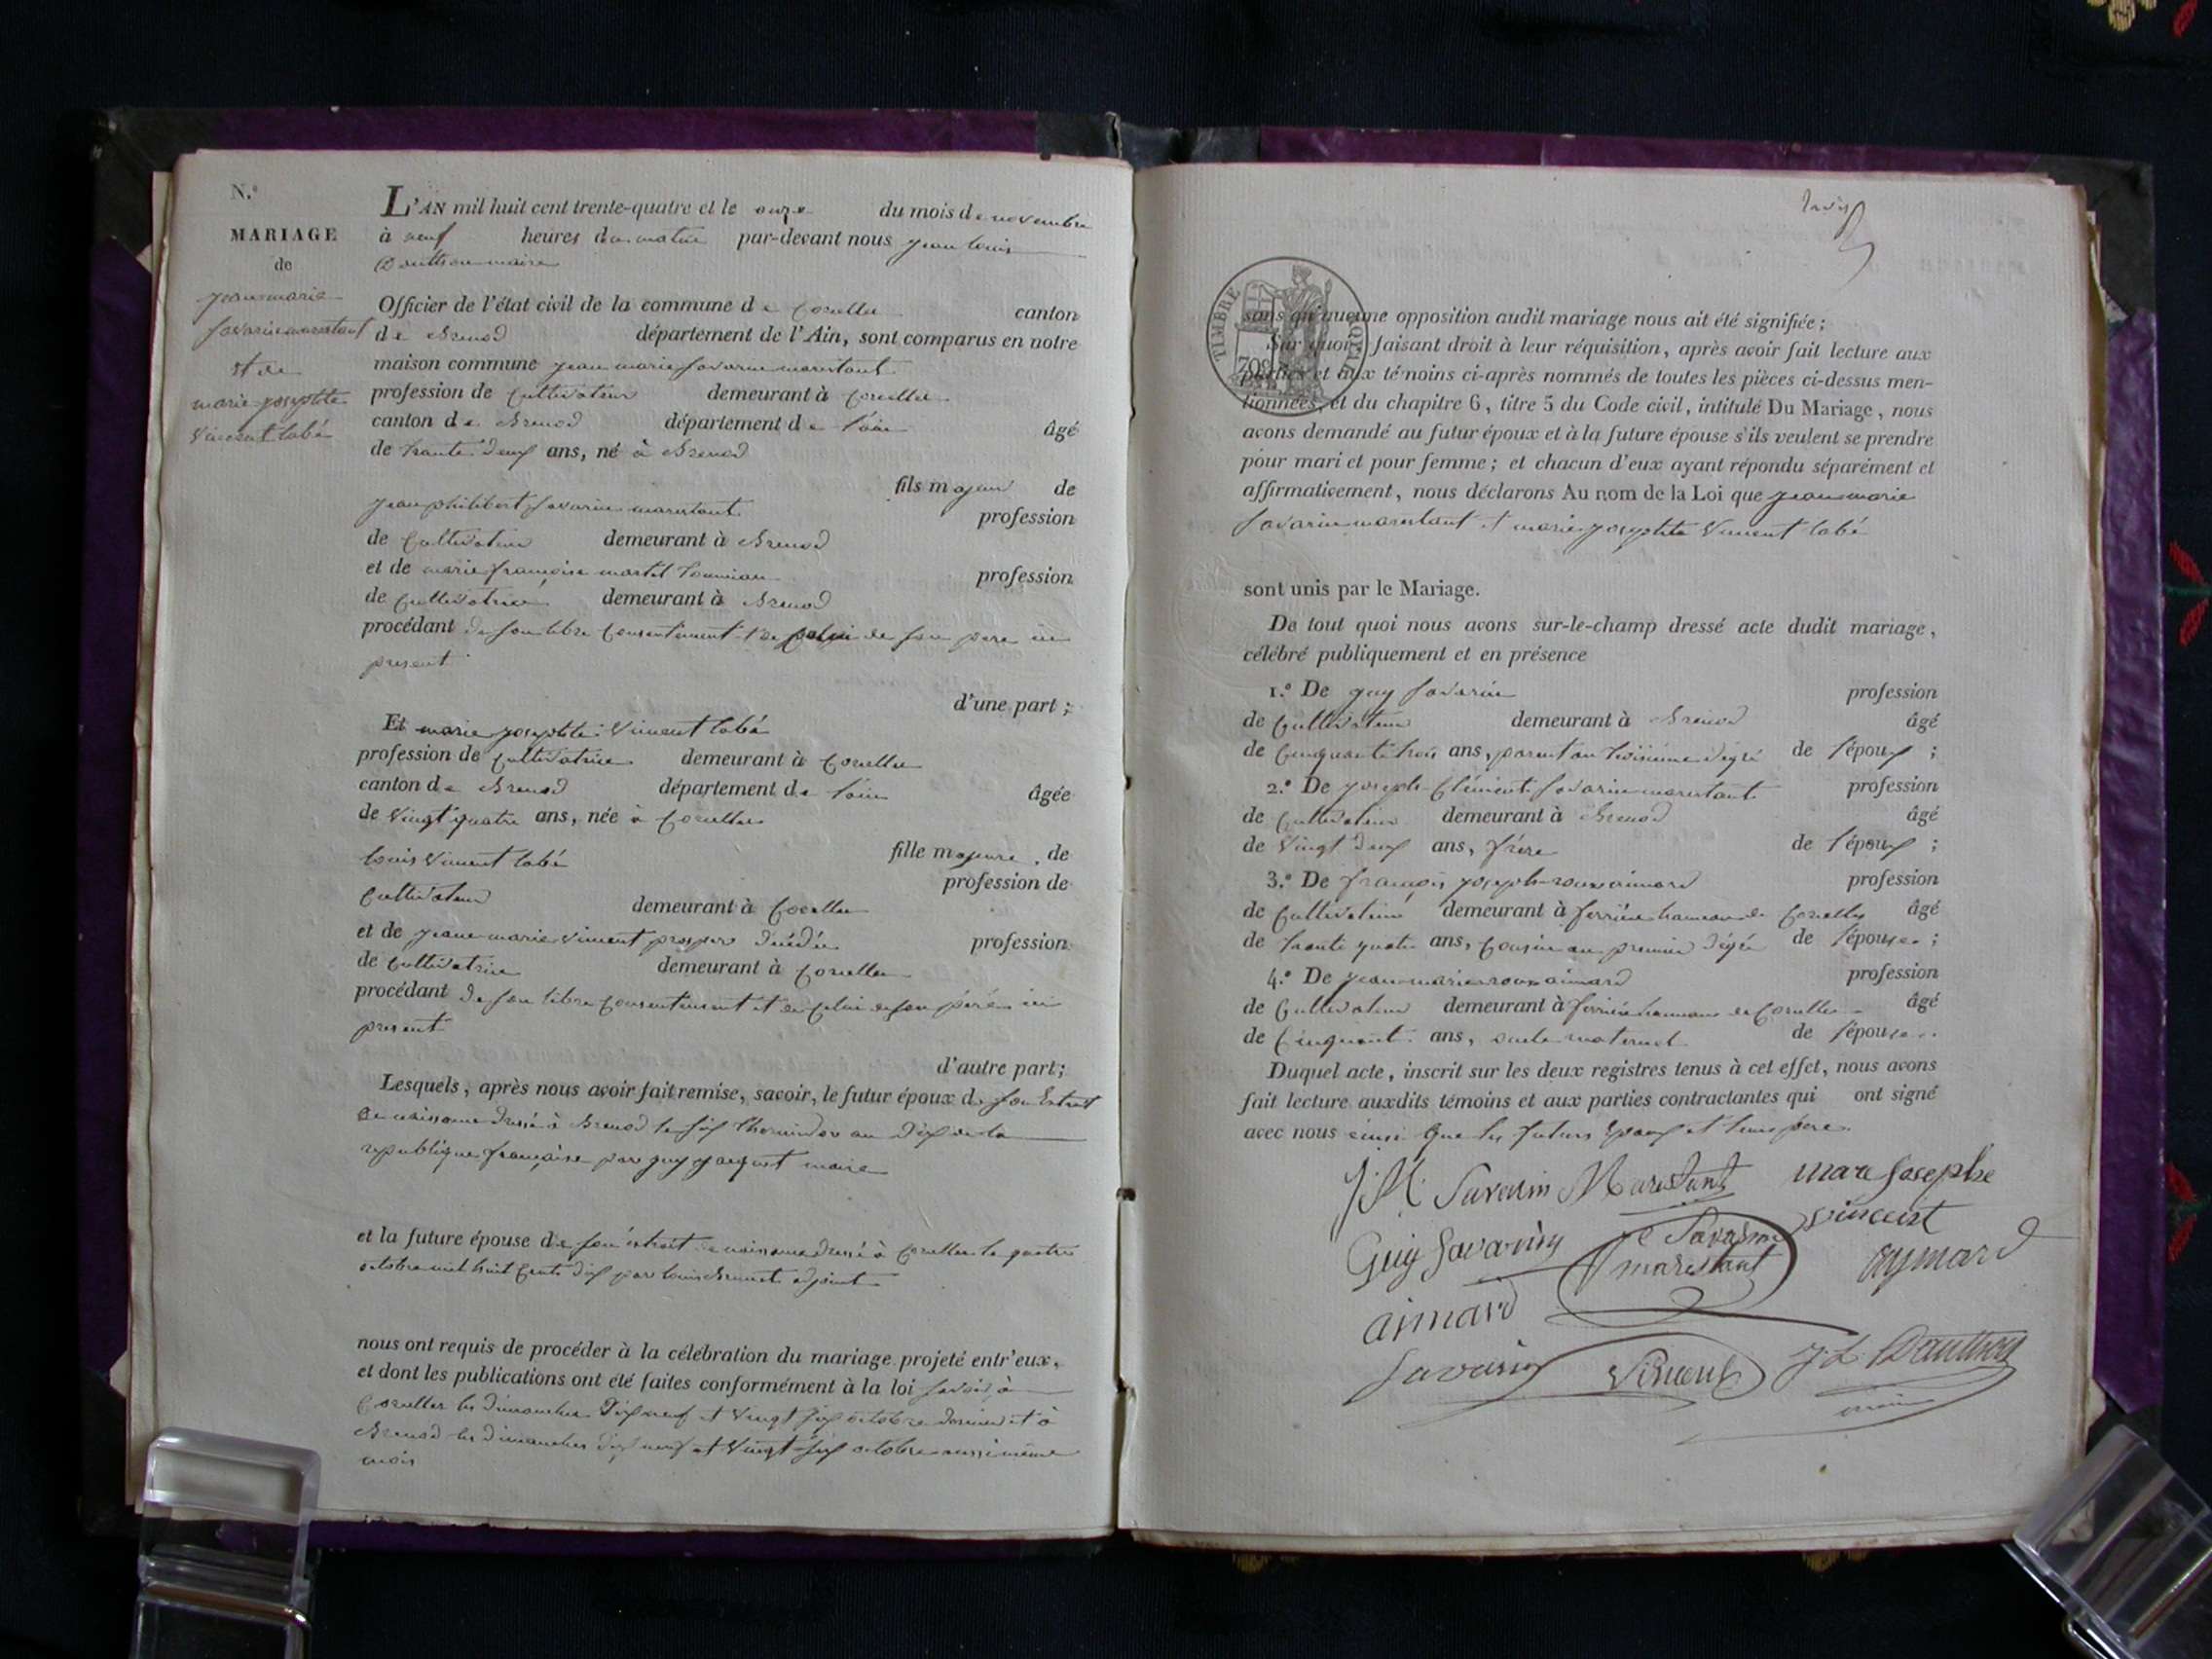 N.º
MARIAGE
de
jean marie
savarin marestant
et de
marie josephte
vincent labé
L'AN mil huit cent trente-quatre et le onze du mois de novembre
à neuf heures du matin par-devant nous jean louis
Douthon maire
Officier de l'état civil de la commune de Corcelles canton
de Brenod département de l'Ain, sont comparus en notre
maison commune jean marie savarin marestant
profession de cultivateur demeurant à Corcelles
canton de Brenod département de l'ain âgé
de trente deux ans, né à Brenod
fils majeur de
jean philibert savarin marestant
profession
de cultivateur demeurant à Brenod
et de marie françoise martel profession
de cultivatrice demeurant à Brenod
procédant de son libre consentement et de celui de son pere ici
present
d'une part;
Et marie josephte vincent labé
profession de cultivatrice demeurant à Corcelles
canton de Brenod département de l'ain âgée
de vingt quatre ans, née à Corcelles
fille majeure, de
louis vincent labé
profession de
cultivateur demeurant à Corcelles
et de jeane marie vincent prosper profession
de cultivatrice demeurant à Corcelles
procédant de son libre consentement et de celui de son pére ici
present
d'autre part;
Lesquels, après nous avoir fait remise, savoir, le futur époux de son Extrait
de naissance dressé à Brenod le six thermidor an dix de la
republique française par guy jacquet maire
et la future épouse de son extrait de naissance dressé à Corcelles le quatre
octobre mil huit cents dix par louis Brunet adjoint
nous ont requis de procéder à la célébration du mariage projeté entr'eux,
et dont les publications ont été faites conformément à la loi savoir à
Corcelles les dimanches dix neuf et vingt six octobre dernier et à
Brenod les dimanches dix neuf et vingt six octobre aussi même
mois
TIMBRE
70c
sans qu'aucune opposition audit mariage nous ait été signifiée;
Sur quoi, faisant droit à leur réquisition, après avoir fait lecture aux
parties et aux témoins ci-après nommés de toutes les pièces ci-dessus men-
tionnées, et du chapitre 6, titre 5 du Code civil, intitulé Du Mariage, nous
avons demandé au futur époux et à la future épouse s'ils veulent se prendre
pour mari et pour femme; et chacun d'eux ayant répondu séparément et
affirmativement, nous déclarons Au nom de la Loi que jean marie
savarin marestant et marie josephte vincent labé
sont unis par le Mariage.
De tout quoi nous avons sur-le-champ dressé acte dudit mariage,
célébré publiquement et en présence
1.º De guy savarin profession
de cultivateur demeurant à Brenod âgé
de cinquante trois ans, parent au troisième dégré de l'époux;
2.º De joseph Clément savarin marestant profession
de cultivateur demeurant à Brenod âgé
de vingt deux ans, frère de l'époux;
3.º De françois joseph roux aimard profession
de cultivateur demeurant à ferrière hameau de Corcelles âgé
de trente quatre ans, cousin au premier dégré de l'épouse;
4.º De jean marie roux aimard profession
de cultivateur demeurant à ferrière hameau de Corcelles âgé
de cinquante ans, oncle maternel de l'épouse.
Duquel acte, inscrit sur les deux registres tenus à cet effet, nous avons
fait lecture auxdits témoins et aux parties contractantes qui ont signé
avec nous ainsi que les futurs époux et leurs pére.
J.M. Savarin Marestant mare Josephe
vincent
Guy Savarin J C Savarin aymard
marestant
aimard
Savarin Vincent J.L. Douthon
maire